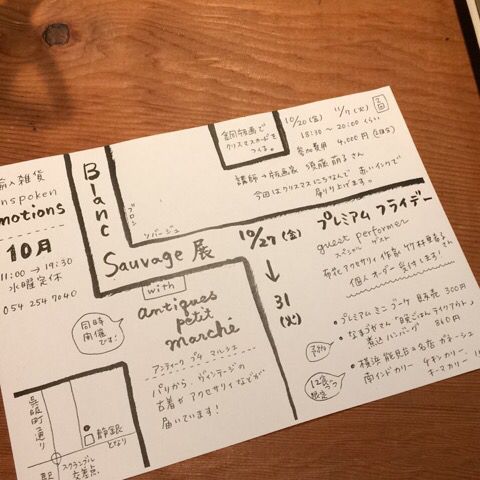 輸入雑貨
nspoken
motions
10月
11:00 → 19:30
水曜定休
054 254 7040
Blanc
ブロン
ソバージュ
Sauvage 展
with
antiques
petit
marché
アンティーク プチ マルシェ
同時
開催
です!
パリから、ヴィンテージの
古着が アクセサリィなどが
届いています!
10/27 (金)
↓
31
(火)
銅版画で
クリスマスカードを
つくる。
10/20 (金) 11/7 (火)
18:30 〜 20:00 くらい
参加費用 4,000円
講師 → 版画家 須藤萌子さん
今回はクリスマスにちなんで 赤いインクで
刷り上げます。
プレミアム フライデー
guest performer
スペシャル ゲスト
布花アクセサリィ作家
さん
個人オーダー受付します!
• プレミアム ミニ ブーケ 300円
予約
• なまづやさん 「晩ごはん テイクアウト」
煮込ハンバーグ 860円
12食
限定
• 横浜 能見台の名店 ガネーシュ
南インドカリー チキンカリー、
キーマカリー
呉服町通り
静銀
となり
スクランブル
交差点
駅